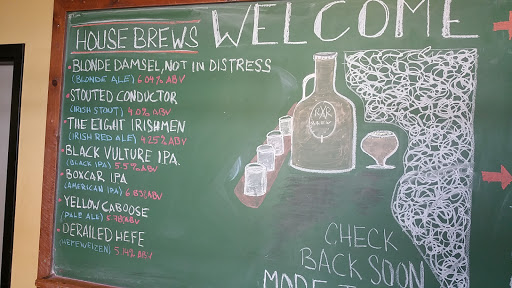 HOUSE BREWS
WELCOME
BLONDE DAMSEL, NOT IN DISTRESS
(BLONDE ALE) 6.04% ABV
STOUTED CONDUCTOR
(IRISH STOUT) 4.0% ABV
THE EIGHT IRISHMEN
(IRISH RED ALE) 4.25% ABV
BLACK VULTURE IPA.
(BLACK IPA) 5.5% ABV
BOXCAR IPA
(AMERICAN IPA) 6.83% ABV
YELLOW CABOOSE
(PALE ALE) ABV
DERAILED HEFE
(HEFEWEIZEN) 5.14% ABV
CHECK
BACK SOON
MORE